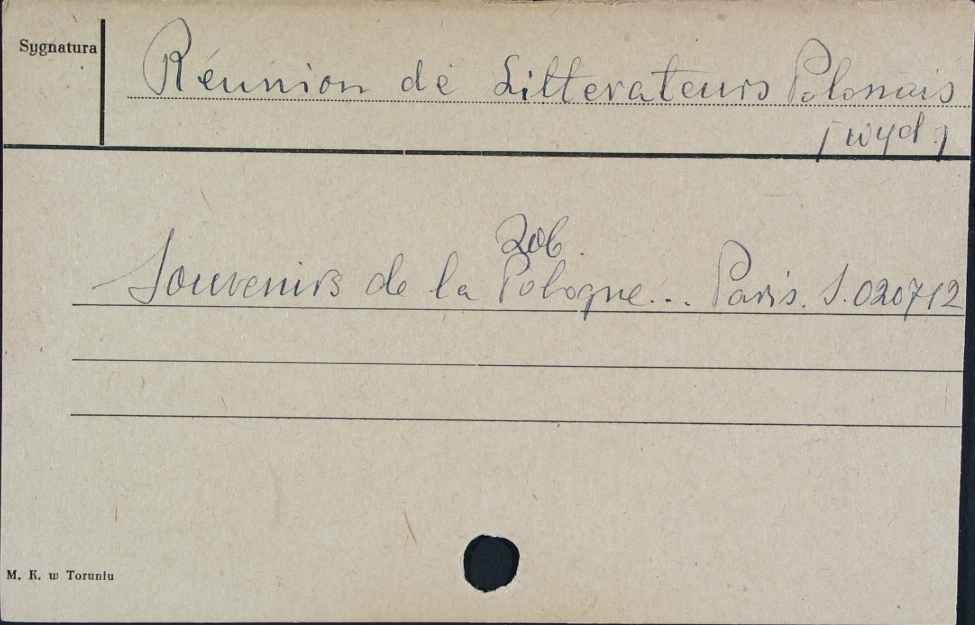 Sygnatura
Réunion de Litterateurs Polonais
[wyd.]
Zob.
Souvenirs de la Pologne... Paris. S. 020712
M. K. w Toruniu